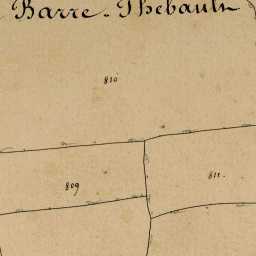 Barre-Thebault
810
809
811.